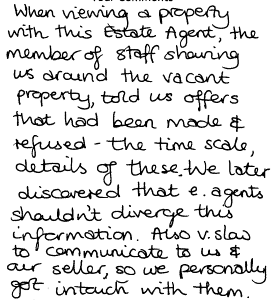 When viewing a property
with this Estate Agent, the
member of staff showing
us around the vacant
property, told us offers
that had been made &
refused - the time scale,
details of these. We later
discovered that e. agents
shouldn't diverge this
information. Also v. slow
to communicate to us &
our seller, so we personally
got intouch with them.